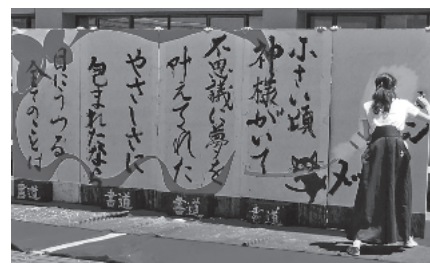 小さい頃
神様がいて
不思議に夢を
叶えてくれた
やさしさに
包まれたなら
目にうつる
全てのことは
書道
書道
書道
書道